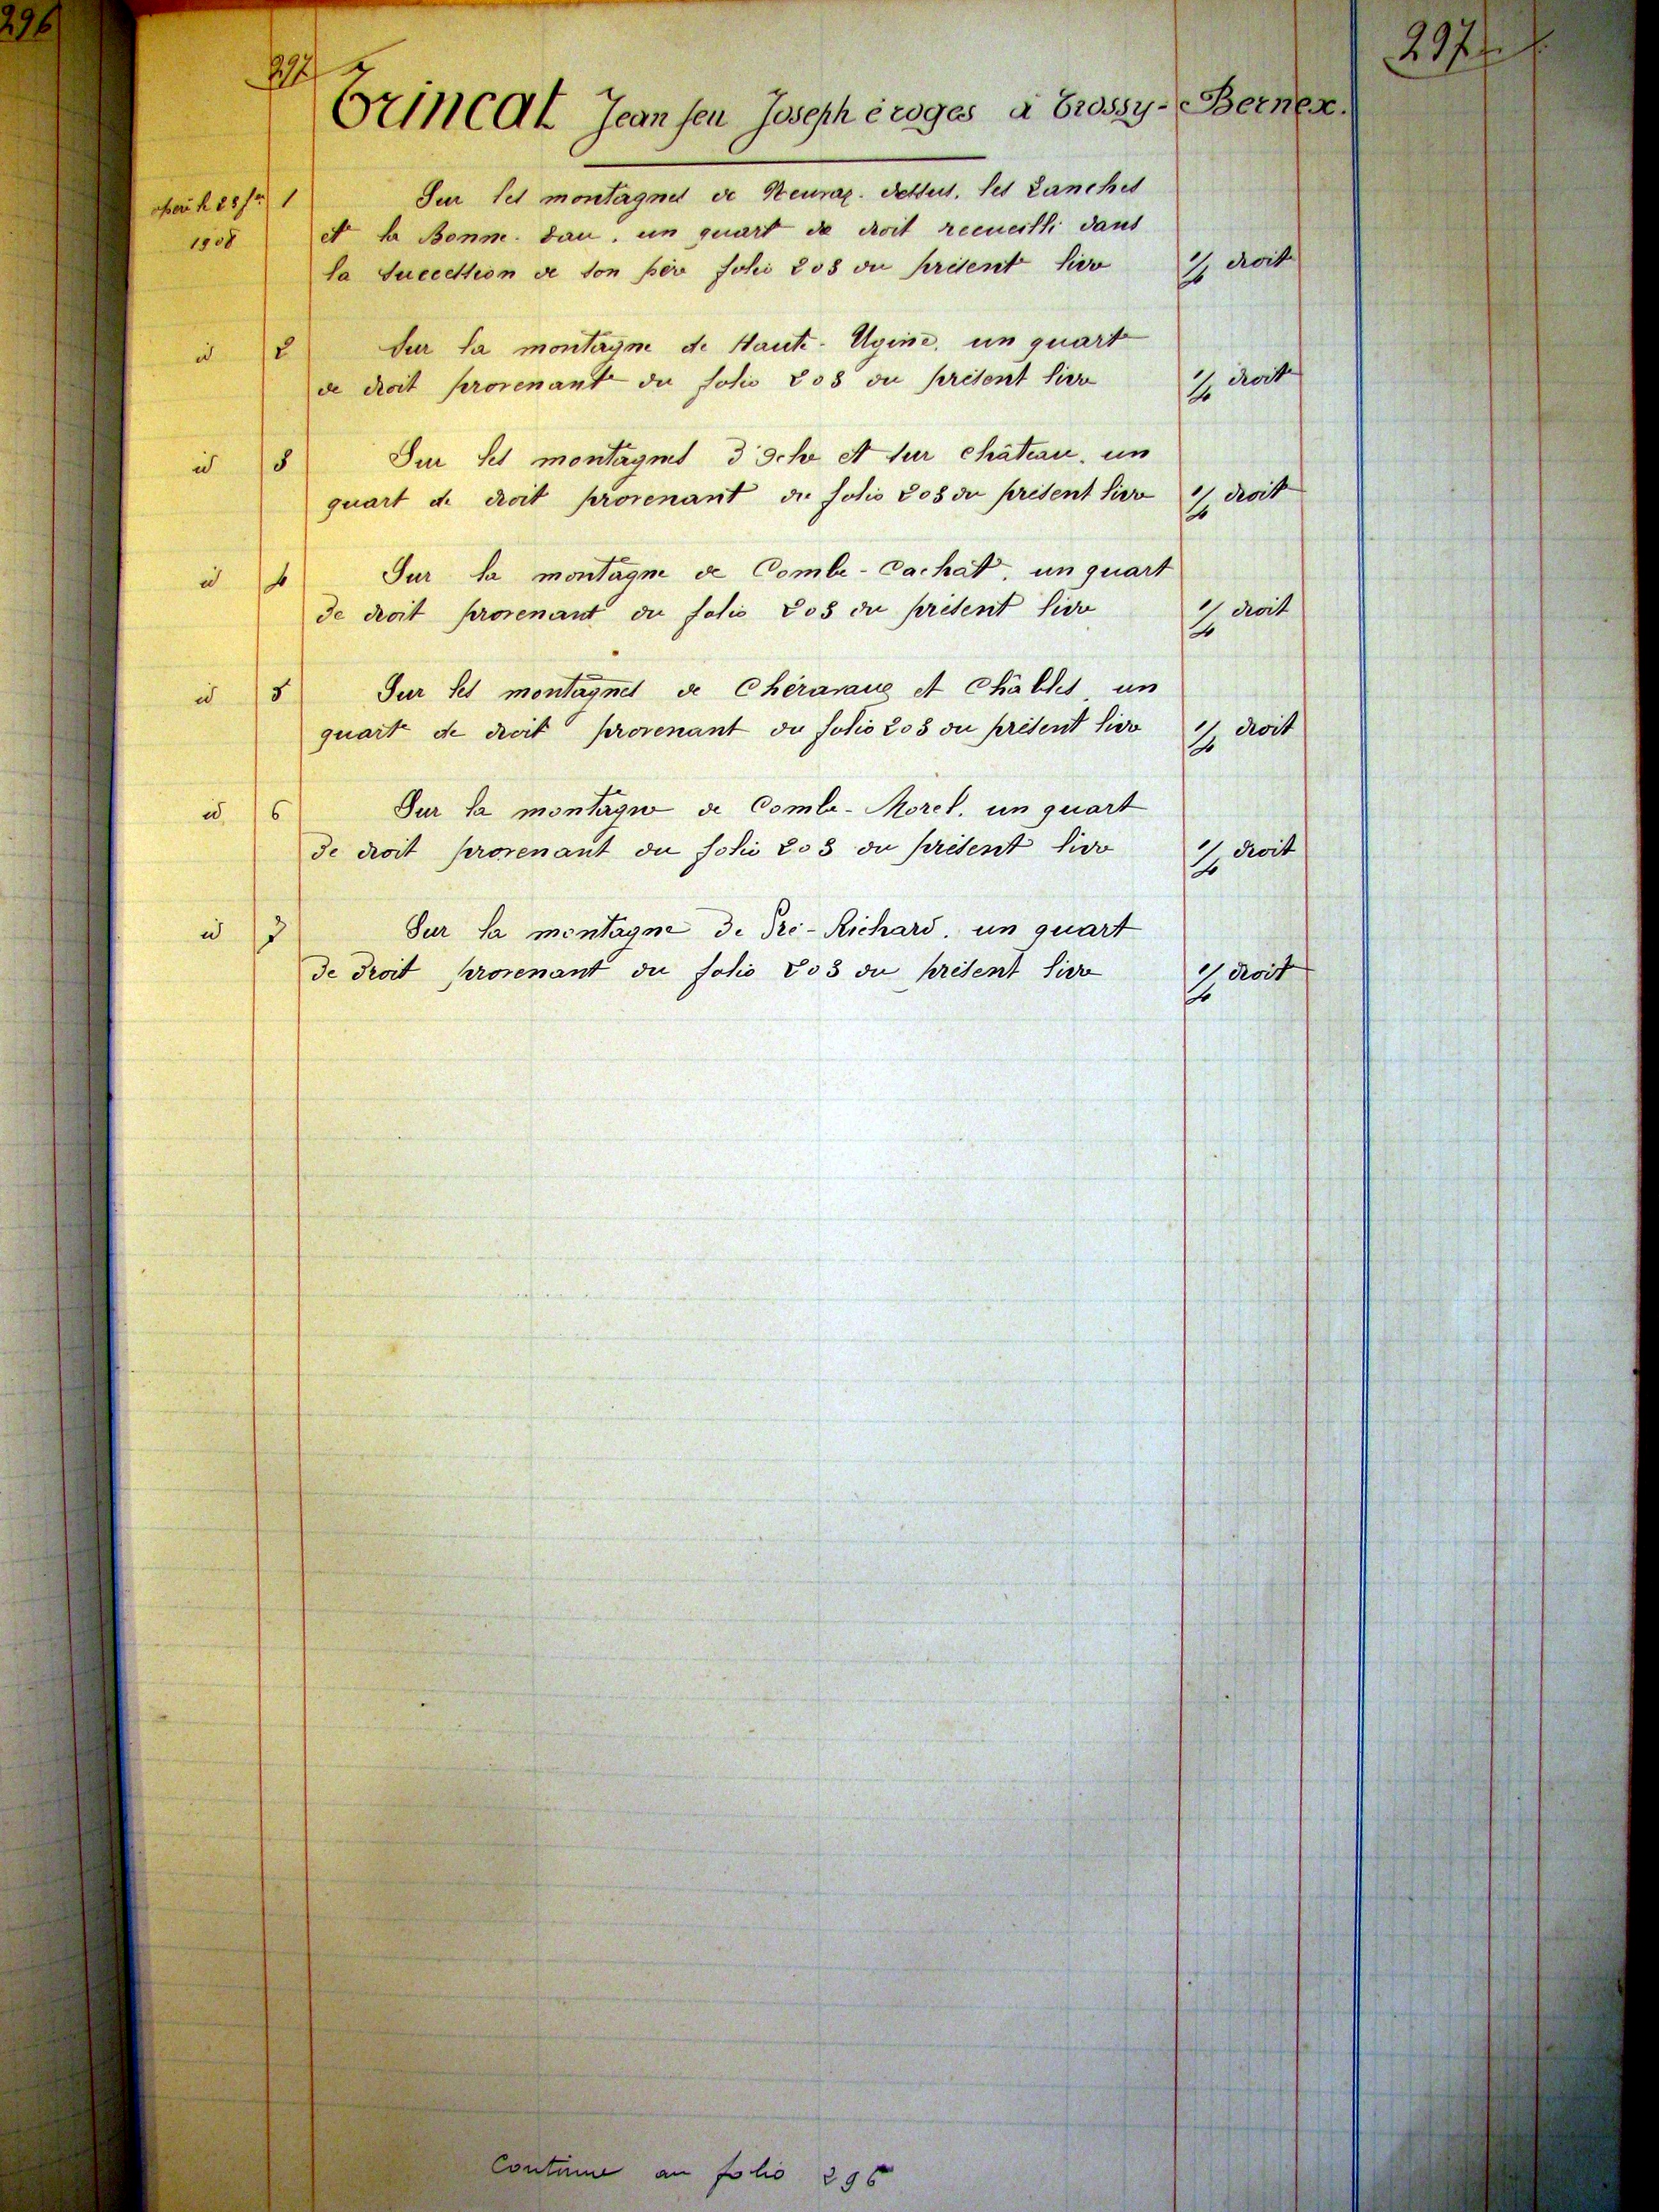 296
297
297
Trincat Jean feu Joseph éroges à Trossy-Bernex.
opéré le 25 fer 1 Sur les montagnes de Neuvaz-dessus, les Lanches
1908 et la Bonne-Eau, un quart de droit recueilli dans
la succession de son père folio 203 du présent livre 1/4 droit
id 2 Sur la montagne de Haute-Ugine, un quart
de droit provenant du folio 203 du présent livre 1/4 droit
id 3 Sur les montagnes d'Oche et sur Château, un
quart de droit provenant du folio 203 du présent livre 1/4 droit
id 4 Sur la montagne de Combe-Cachat, un quart
de droit provenant du folio 203 du présent livre 1/4 droit
id 5 Sur les montagnes de Chéravaux et Châbles, un
quart de droit provenant du folio 203 du présent livre 1/4 droit
id 6 Sur la montagne de Combe-Morel, un quart
de droit provenant du folio 203 du présent livre 1/4 droit
id 7 Sur la montagne de Pré-Richard, un quart
de droit provenant du folio 203 du présent livre 1/4 droit
Continue au folio 296